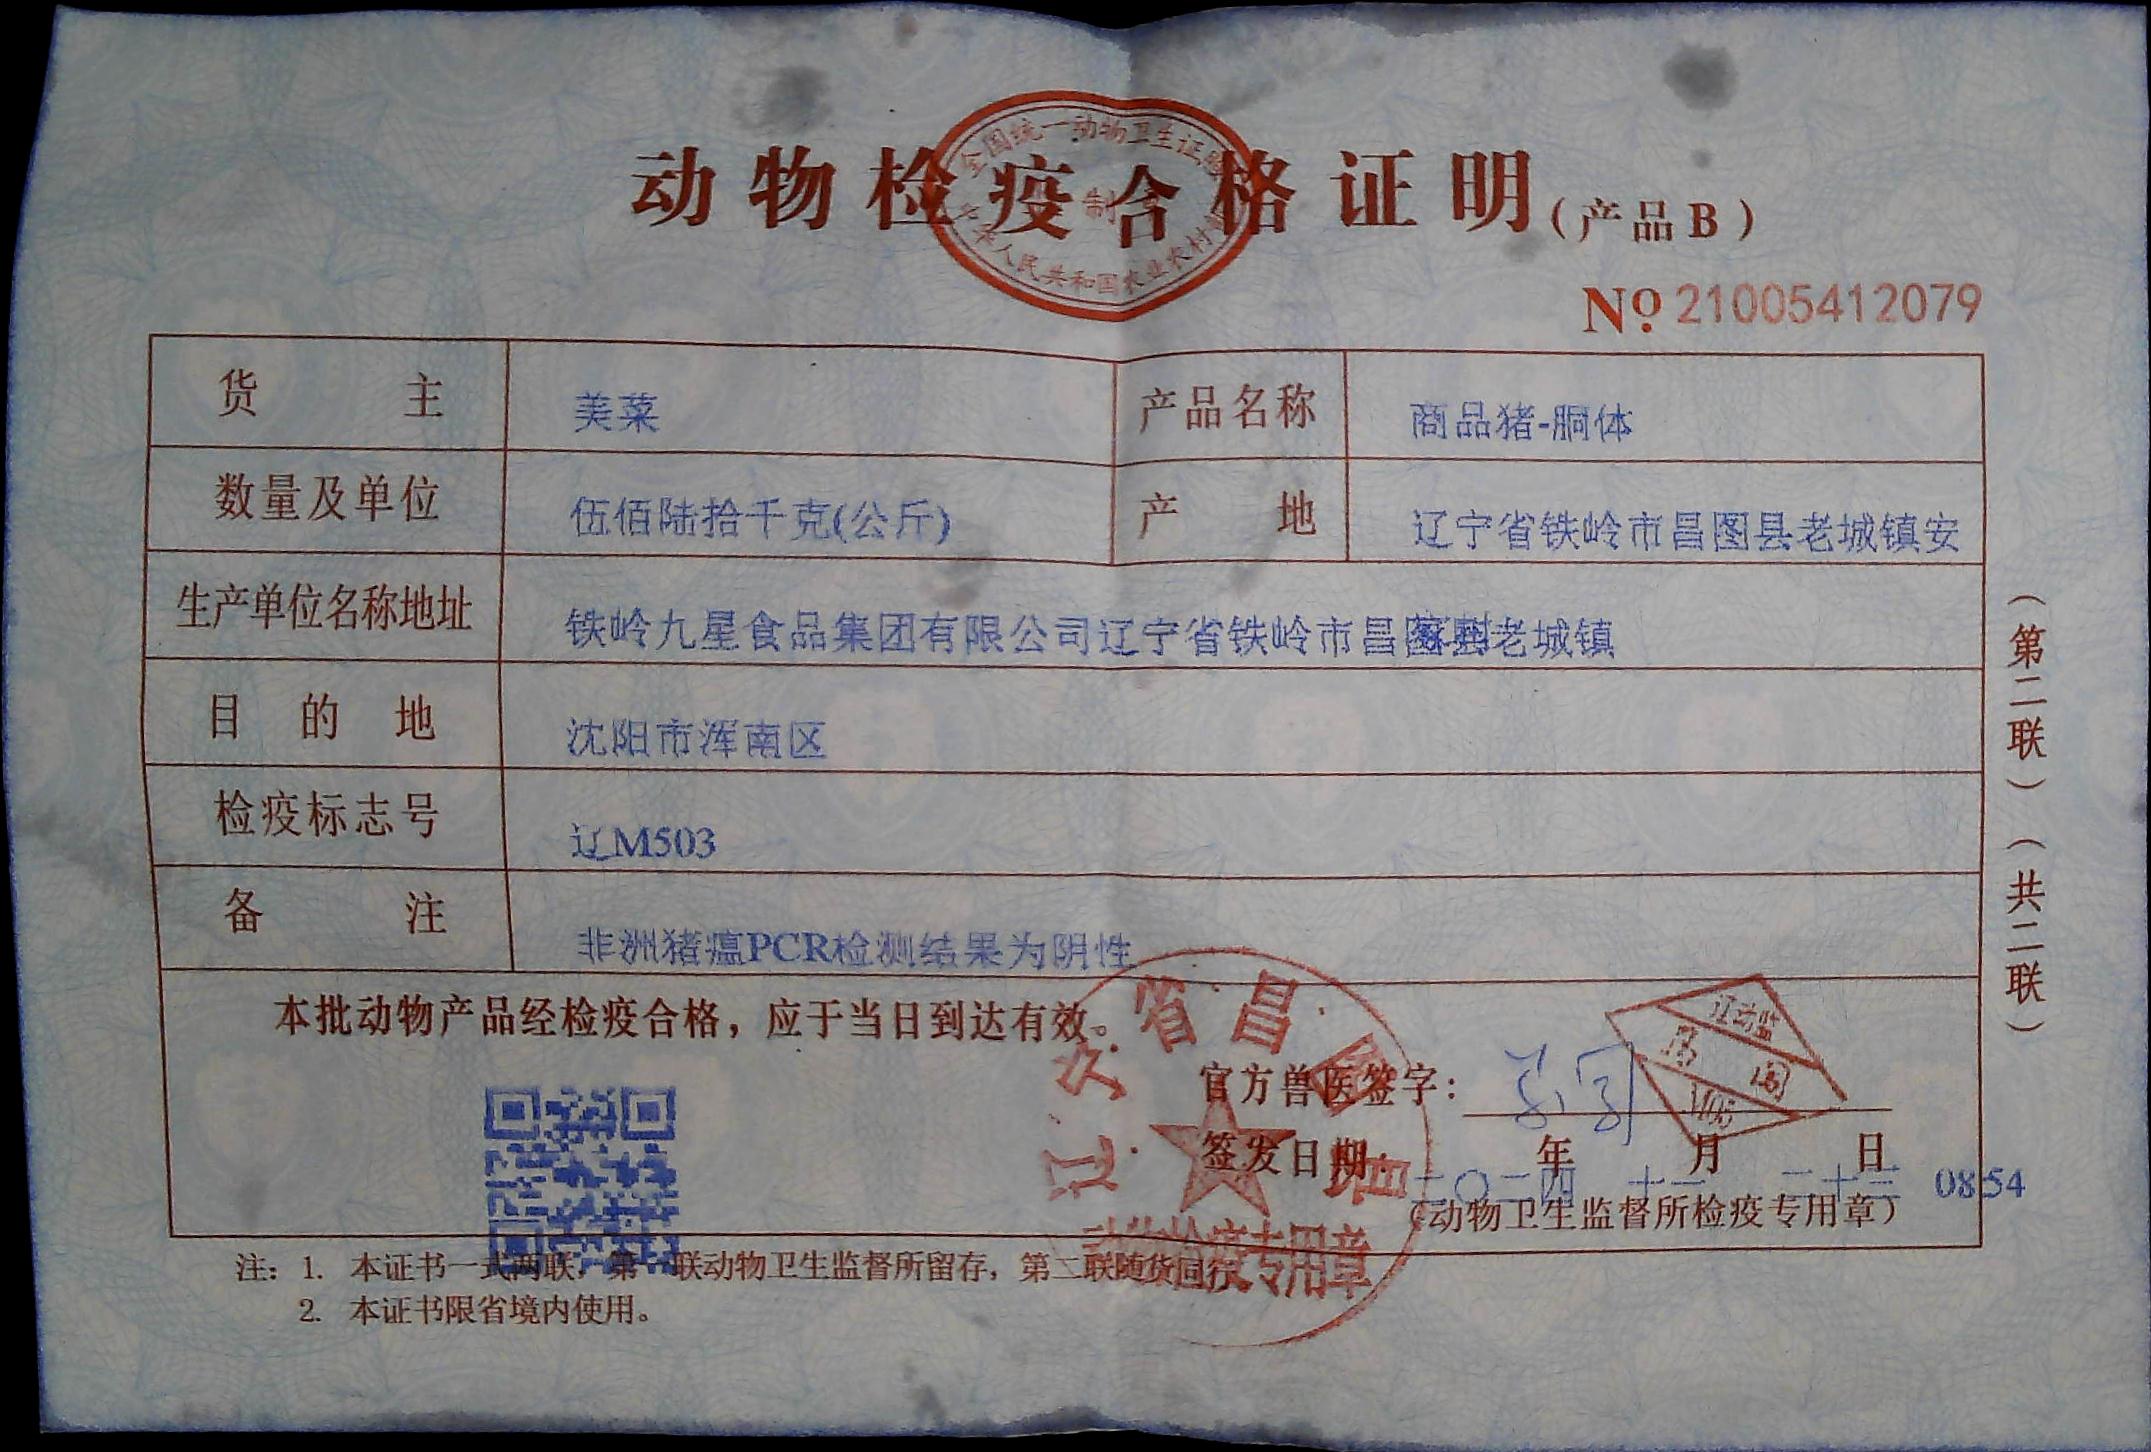 动物检疫合格证明(产品B)
全国统一动物卫生证
制
中华人民共和国农业农村部
№ 21005412079
货主 美菜 产品名称 商品猪-胴体
数量及单位 伍佰陆拾千克(公斤) 产地 辽宁省铁岭市昌图县老城镇安
生产单位名称地址 铁岭九星食品集团有限公司辽宁省铁岭市昌图县老城镇
目的地 沈阳市浑南区
检疫标志号 辽M503
备注 非洲猪瘟PCR检测结果为阴性
本批动物产品经检疫合格，应于当日到达有效。
官方兽医签字：
辽动监
签发日期 年 月 日
二〇二四 十一 二十三 0854
(动物卫生监督所检疫专用章)
省昌图
动物检疫专用章
注：1. 本证书一式两联，第一联动物卫生监督所留存，第二联随货同行。
2. 本证书限省境内使用。
(第二联)(共二联)